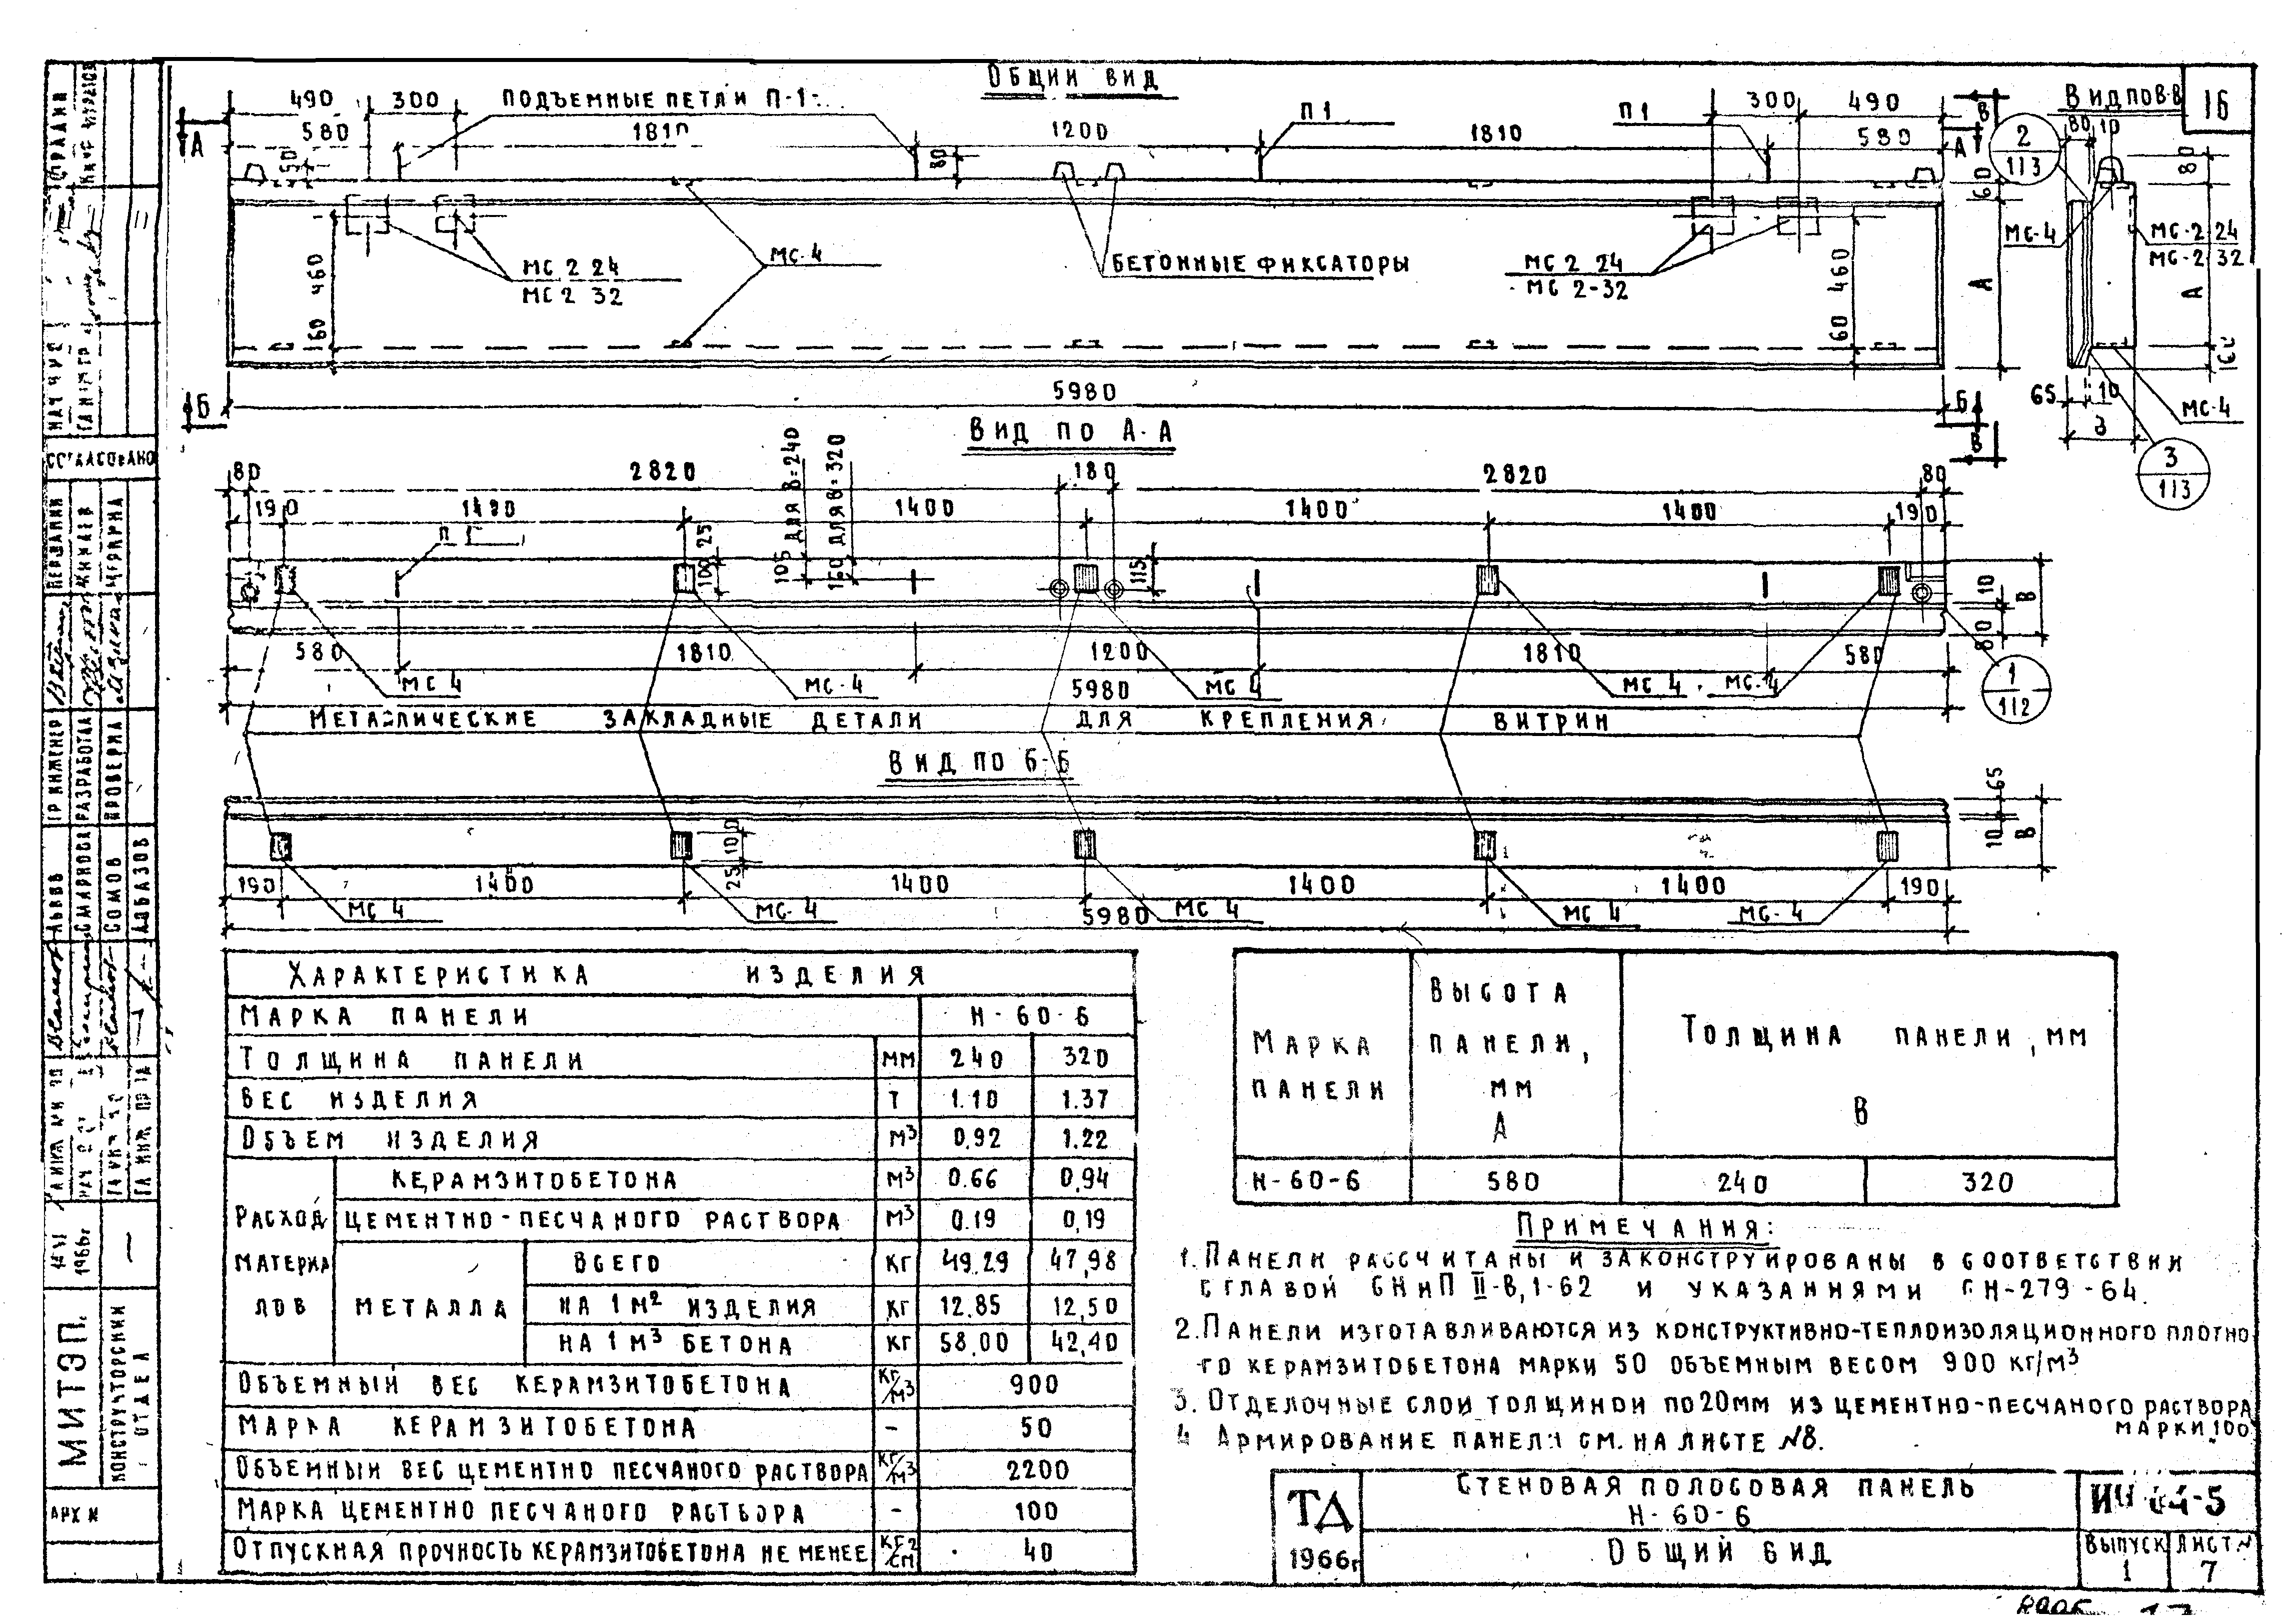 Общий вид
16
490 300 Подъемные петли П-1
580 1810 1200 1810 580
П1 П1
300 490
Вид по В-В
А А В
50 80 60
2
113
80 10
80
МС-4
МС 2 24
МС 2 32
МС-4
Бетонные фиксаторы
МС 2 24
МС 2-32
МС-2 24
МС-2 32
460 60
460 60
А А
5980
Б Б
65 10
МС-4
3
113
Вид по А-А
80 2820 180 2820 80
190 1400 1400 1400 1400 190
105 для В=240
160 для В=320
100 25
115
10 В
80
580 1810 1200 1810 580
МС 4 МС-4 МС 4 МС 4 МС-4
5980
1
112
Металлические закладные детали для крепления витрин
Вид по Б-Б
65
10 В
100
25
190 1400 1400 1400 1400 190
МС 4 МС-4 МС 4 МС 4 МС-4
5980
Характеристика изделия
Марка панели Н-60-6
Толщина панели мм 240 320
Вес изделия т 1.10 1.37
Объем изделия м³ 0.92 1.22
Расход материалов
керамзитобетона м³ 0.66 0,94
цементно-песчаного раствора м³ 0.19 0,19
металла
всего кг 49.29 47,98
на 1 м² изделия кг 12.85 12,50
на 1 м³ бетона кг 58,00 42,40
Объемный вес керамзитобетона кг/м³ 900
Марка керамзитобетона - 50
Объемный вес цементно песчаного раствора кг/м³ 2200
Марка цементно песчаного раствора - 100
Отпускная прочность керамзитобетона не менее кг/см² 40
Марка панели
Высота панели, мм А
Толщина панели, мм В
Н-60-6 580 240 320
Примечания:
1. Панели рассчитаны и законструированы в соответствии
с главой СНиП II-В,1-62 и указаниями СН-279-64.
2. Панели изготавливаются из конструктивно-теплоизоляционного плотно-
го керамзитобетона марки 50 объемным весом 900 кг/м³
3. Отделочные слои толщиной по 20мм из цементно-песчаного раствора
марки 100
4 Армирование панели см. на листе №8.
ТД
1966г.
Стеновая полосовая панель
Н-60-6
Общий вид
ИИ 04-5
Выпуск
1
Лист №
7
Согласовано
Гр инженер
Разработал
Проверил
Львов
Смарнова
Сомов
Албазов
1966г
МИТЭП.
Конструкторский
отдел
Арх №